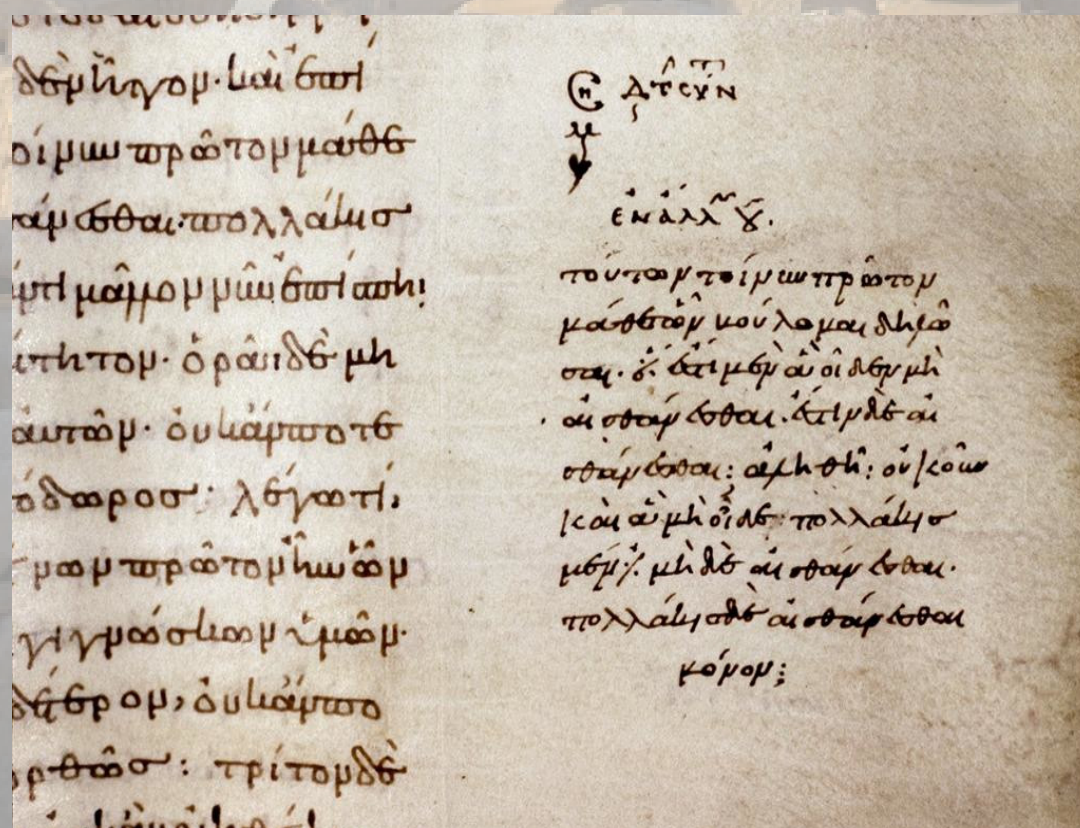 δὲν ἧττον· καὶ ἐπὶ
οίνυν πρῶτον μάθε
άνεσθαι· πολλάκις
ντι μᾶλλον νῦν ἐπίσπη
ίτητον· ὁρᾶι δὲ μη
αὐτῶν· οὐκ ἄν ποτε
όδωρος· λέγω τί,
νων πρῶτον ἦν ὧν
γιγνώσκων ὑμῶν·
δέτερον, οὐκ ἄν πο
ρθῶς: τρίτον δὲ
ἐν ἄλλ
τούτων τοίνυν πρῶτον
μάθε ὧν βούλομαι δηλῶ
σαι. ὅτι ἔστι μὲν ἃ οἶδεν μὴ
αἰσθάνεσθαι. ἔστιν δὲ αἰ
σθάνεσθαι: ἀληθῆ: οὐκοῦν
καὶ ἃ μὴ οἶδε πολλάκις
μὲν ἔστι μηδὲ αἰσθάνεσθαι.
πολλάκις δὲ αἰσθάνεσθαι
μόνον;